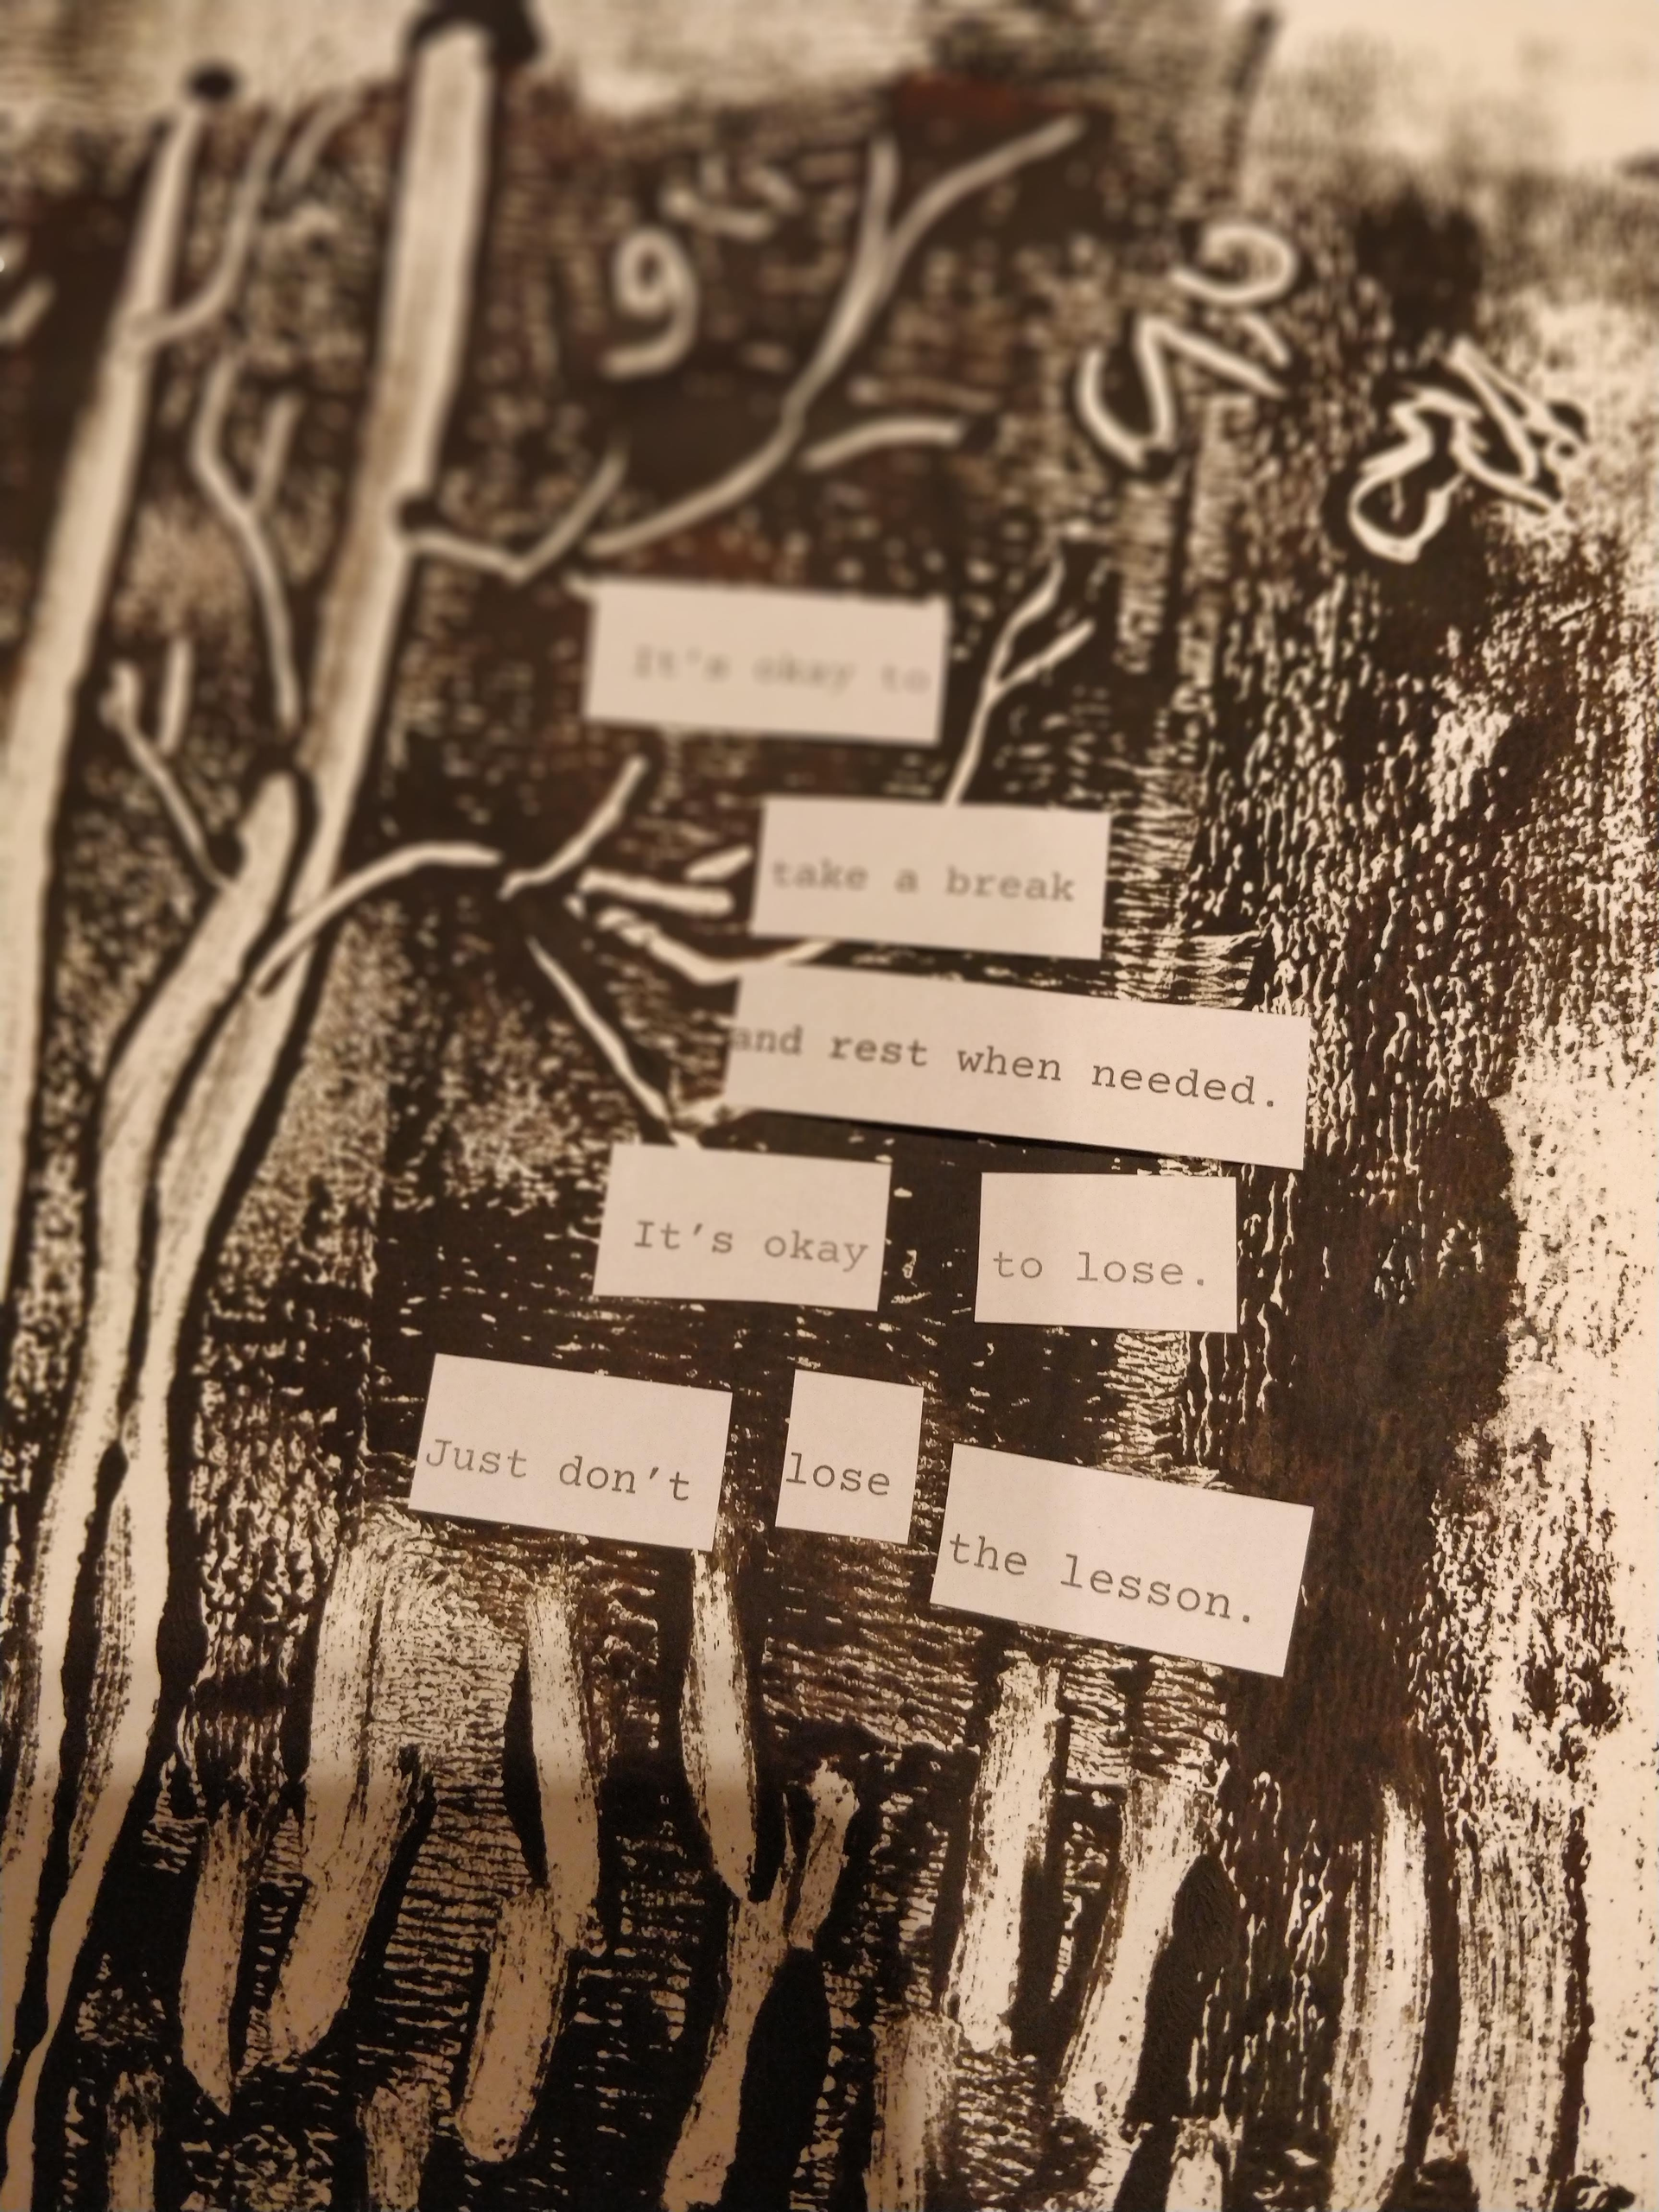 It's okay to
take a break
and rest when needed.
It's okay to lose.
Just don't lose the lesson.